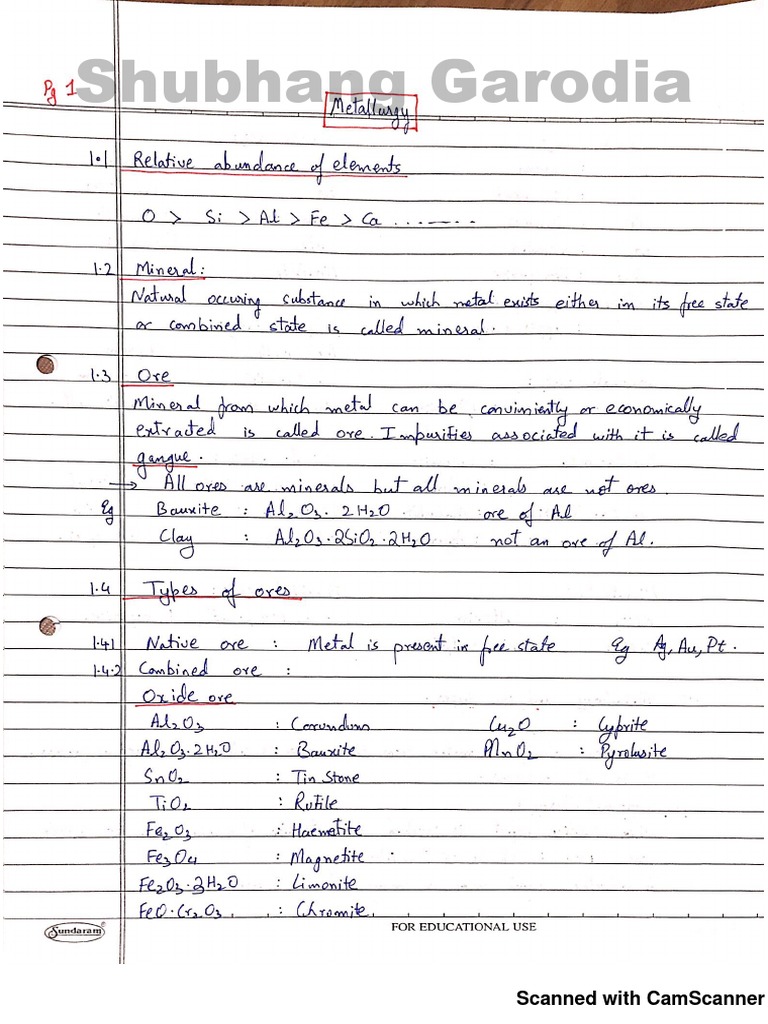 Shubhang Garodia
Pg 1
Metallurgy
1.1 Relative abundance of elements
O > Si > Al > Fe > Ca ........
1.2 Mineral:
Natural occuring substance in which metal exists either in its free state
or combined state is called mineral.
1.3 Ore
Mineral from which metal can be conviniently or economically
extracted is called ore. Impurities associated with it is called
gangue.
→ All ores are minerals but all minerals are not ores.
Eg Bauxite : Al₂O₃. 2H₂O ore of Al
Clay : Al₂O₃.2SiO₂.2H₂O not an ore of Al.
1.4 Types of ores
1.41 Native ore : Metal is present in free state Eg Ag, Au, Pt.
1.4.2 Combined ore :
Oxide ore
Al₂O₃ : Corundum Cu₂O : Cyprite
Al₂O₃.2H₂O : Bauxite MnO₂ : Pyrolusite
SnO₂ : Tin Stone
TiO₂ : Rutile
Fe₂O₃ : Haematite
Fe₃O₄ : Magnetite
Fe₂O₃.3H₂O : Limonite
FeO.Cr₂O₃ : Chromite
Sundaram FOR EDUCATIONAL USE
Scanned with CamScanner